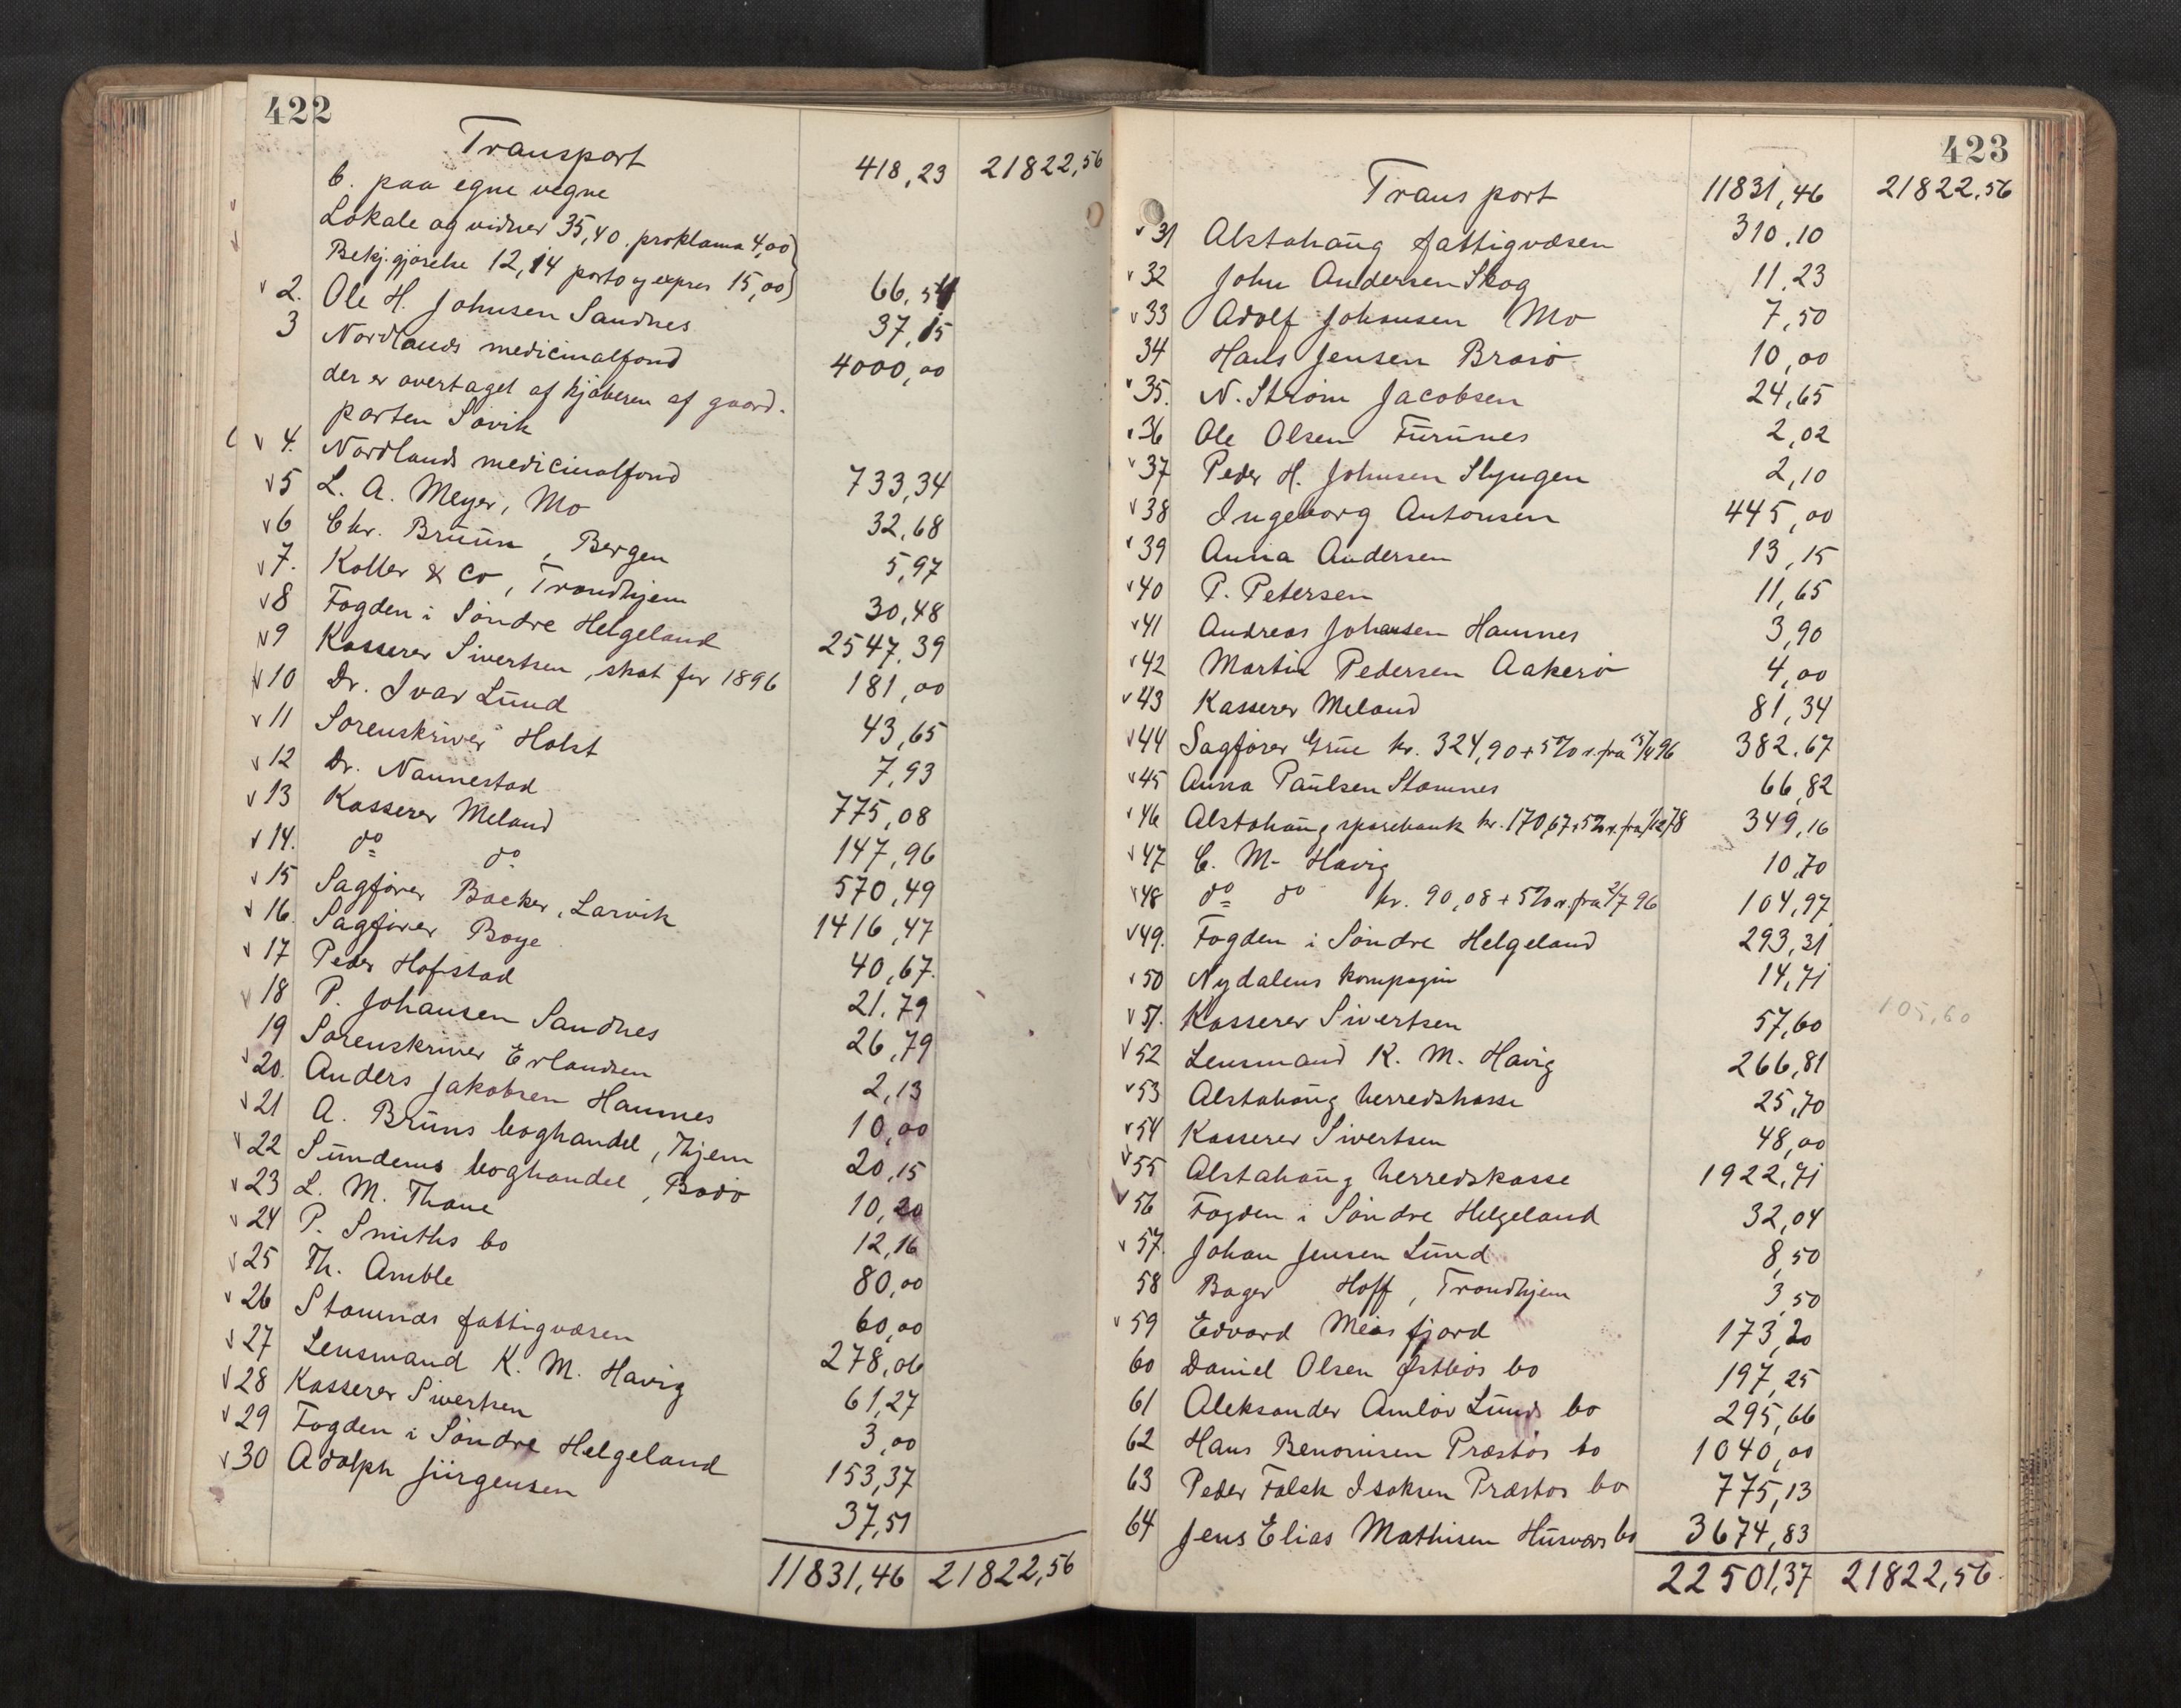 422
Transport 418,23 21822,56
b. paa egne vegne
Lokale og vidner 35,40. proklama 4,00
Bekj.gjørelse 12,14 porto og expres 15,00 66,54
v 2. Ole H. Johnsen Sandnes 37,15
3 Nordlands medicinalfond 4000,00
der er overtaget af kjøberen af gaard-
parten Søvik
v 4. Nordlands medicinalfond 733,34
v 5 L. A. Meyer, Mo 32,68
v 6 Chr. Bruun, Bergen 5,97
v 7. Koller & Co, Trondhjem 30,48
v 8 Fogden i Søndre Helgeland 2547,39
v 9 Kasserer Sivertsen, skat for 1896 181,00
v 10 Dr. Ivar Lund 43,65
v 11 Sorenskriver Holst 7,93
v 12 Dr. Nannestad 775,08
v 13 Kasserer Meland 147,96
v 14. do do 570,49
v 15 Sagfører Backer, Larvik 1416,47
v 16. Sagfører Boye 40,67.
v 17 Peder Hofstad 21,79
v 18 P. Johansen Sandnes 26,79
19 Sorenskriver Erlandsen 2,13
v 20. Anders Jakobsen Hamnes 10,00
v 21 A. Bruns boghandel, Thjem 20,15
v 22 Sundems boghandel, Bodø 10,20
v 23 L. M. Thane 12,16
v 24 P. Smiths bo 80,00
v 25 Th. Amble 60,00
v 26 Stamnæs fattigvæsen 278,06
v 27 Lensmand K. M. Havig 61,27
v 28 Kasserer Sivertsen 3,00
v 29 Fogden i Søndre Helgeland 153,37
v 30 Adolph Jürgensen 37,51
11831,46 21822,56
423
Transport 11831,46 21822,56
v 31 Alstahaug fattigvæsen 310,10
v 32 John Andersen Skog 11,23
v 33 Adolf Johansen Mo 7,50
34 Hans Jensen Brasø 10,00
v 35. N. Strøm Jacobsen 24,65
v 36 Ole Olsen Furunes 2,02
v 37 Peder H. Johnsen Slyngen 2,10
v 38 Ingeborg Antonsen 445,00
v 39 Anna Andersen 13,15
v 40 P. Petersen 11,65
v 41 Andreas Johansen Hamnes 3,90
v 42 Martin Pedersen Aakerø 4,00
v 43 Kasserer Meland 81,34
v 44 Sagfører Grue kr. 324,90 + 5% r. fra 96 382,67
v 45 Anna Paulsen Stamnes 66,82
v 46 Alstahaug sparebank kr. 170,67 + 5% r. fra 78 349,16
v 47 C. M. Havig 10,70
v 48 do do kr. 90,08 + 5% r. fra 2/7 96 104,97
v 49. Fogden i Søndre Helgeland 293,31
v 50 Nydalens kompagni 14,71
v 51. Kasserer Sivertsen 57,60 105,60
v 52 Lensmand K. M. Havig 266,81
v 53 Alstahaug herredskasse 25,70
v 54 Kasserer Sivertsen 48,00
v 55 Alstahaug herredskasse 1922,71
v 56 Fogden i Søndre Helgeland 32,04
v 57. Johan Jensen Lund 8,50
58 Bager Hoff, Trondhjem 3,50
v 59 Edvard Meisfjord 173,20
60 Daniel Olsen Østbøs bo 197,25
61 Aleksander Amløv Lunds bo 295,66
62 Hans Benonisen Præstøs bo 1040,00
63 Peder Falck Isaksen Præstøs bo 775,13
64 Jens Elias Mathisen Husværs bo 3674,83
22501,37 21822,56.